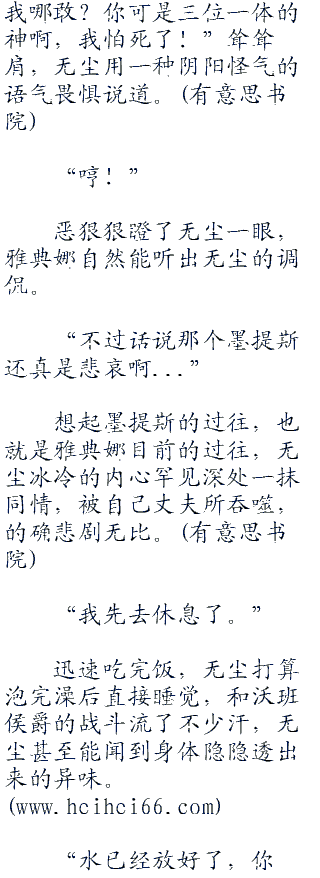 我哪敢？你可是三位一体的
神啊，我怕死了！”耸耸
肩，无尘用一种阴阳怪气的
语气畏惧说道。(有意思书
院)
“哼！”
恶狠狠瞪了无尘一眼，
雅典娜自然能听出无尘的调
侃。
“不过话说那个墨提斯
还真是悲哀啊...”
想起墨提斯的过往，也
就是雅典娜目前的过往，无
尘冰冷的内心罕见深处一抹
同情，被自己丈夫所吞噬，
的确悲剧无比。(有意思书
院)
“我先去休息了。”
迅速吃完饭，无尘打算
泡完澡后直接睡觉，和沃班
侯爵的战斗流了不少汗，无
尘甚至能闻到身体隐隐透出
来的异味。
(www.hcihci66.com)
“水已经放好了，你